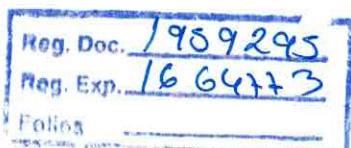 Reg. Doc. 1959295
Reg. Exp. 1664773
Folios